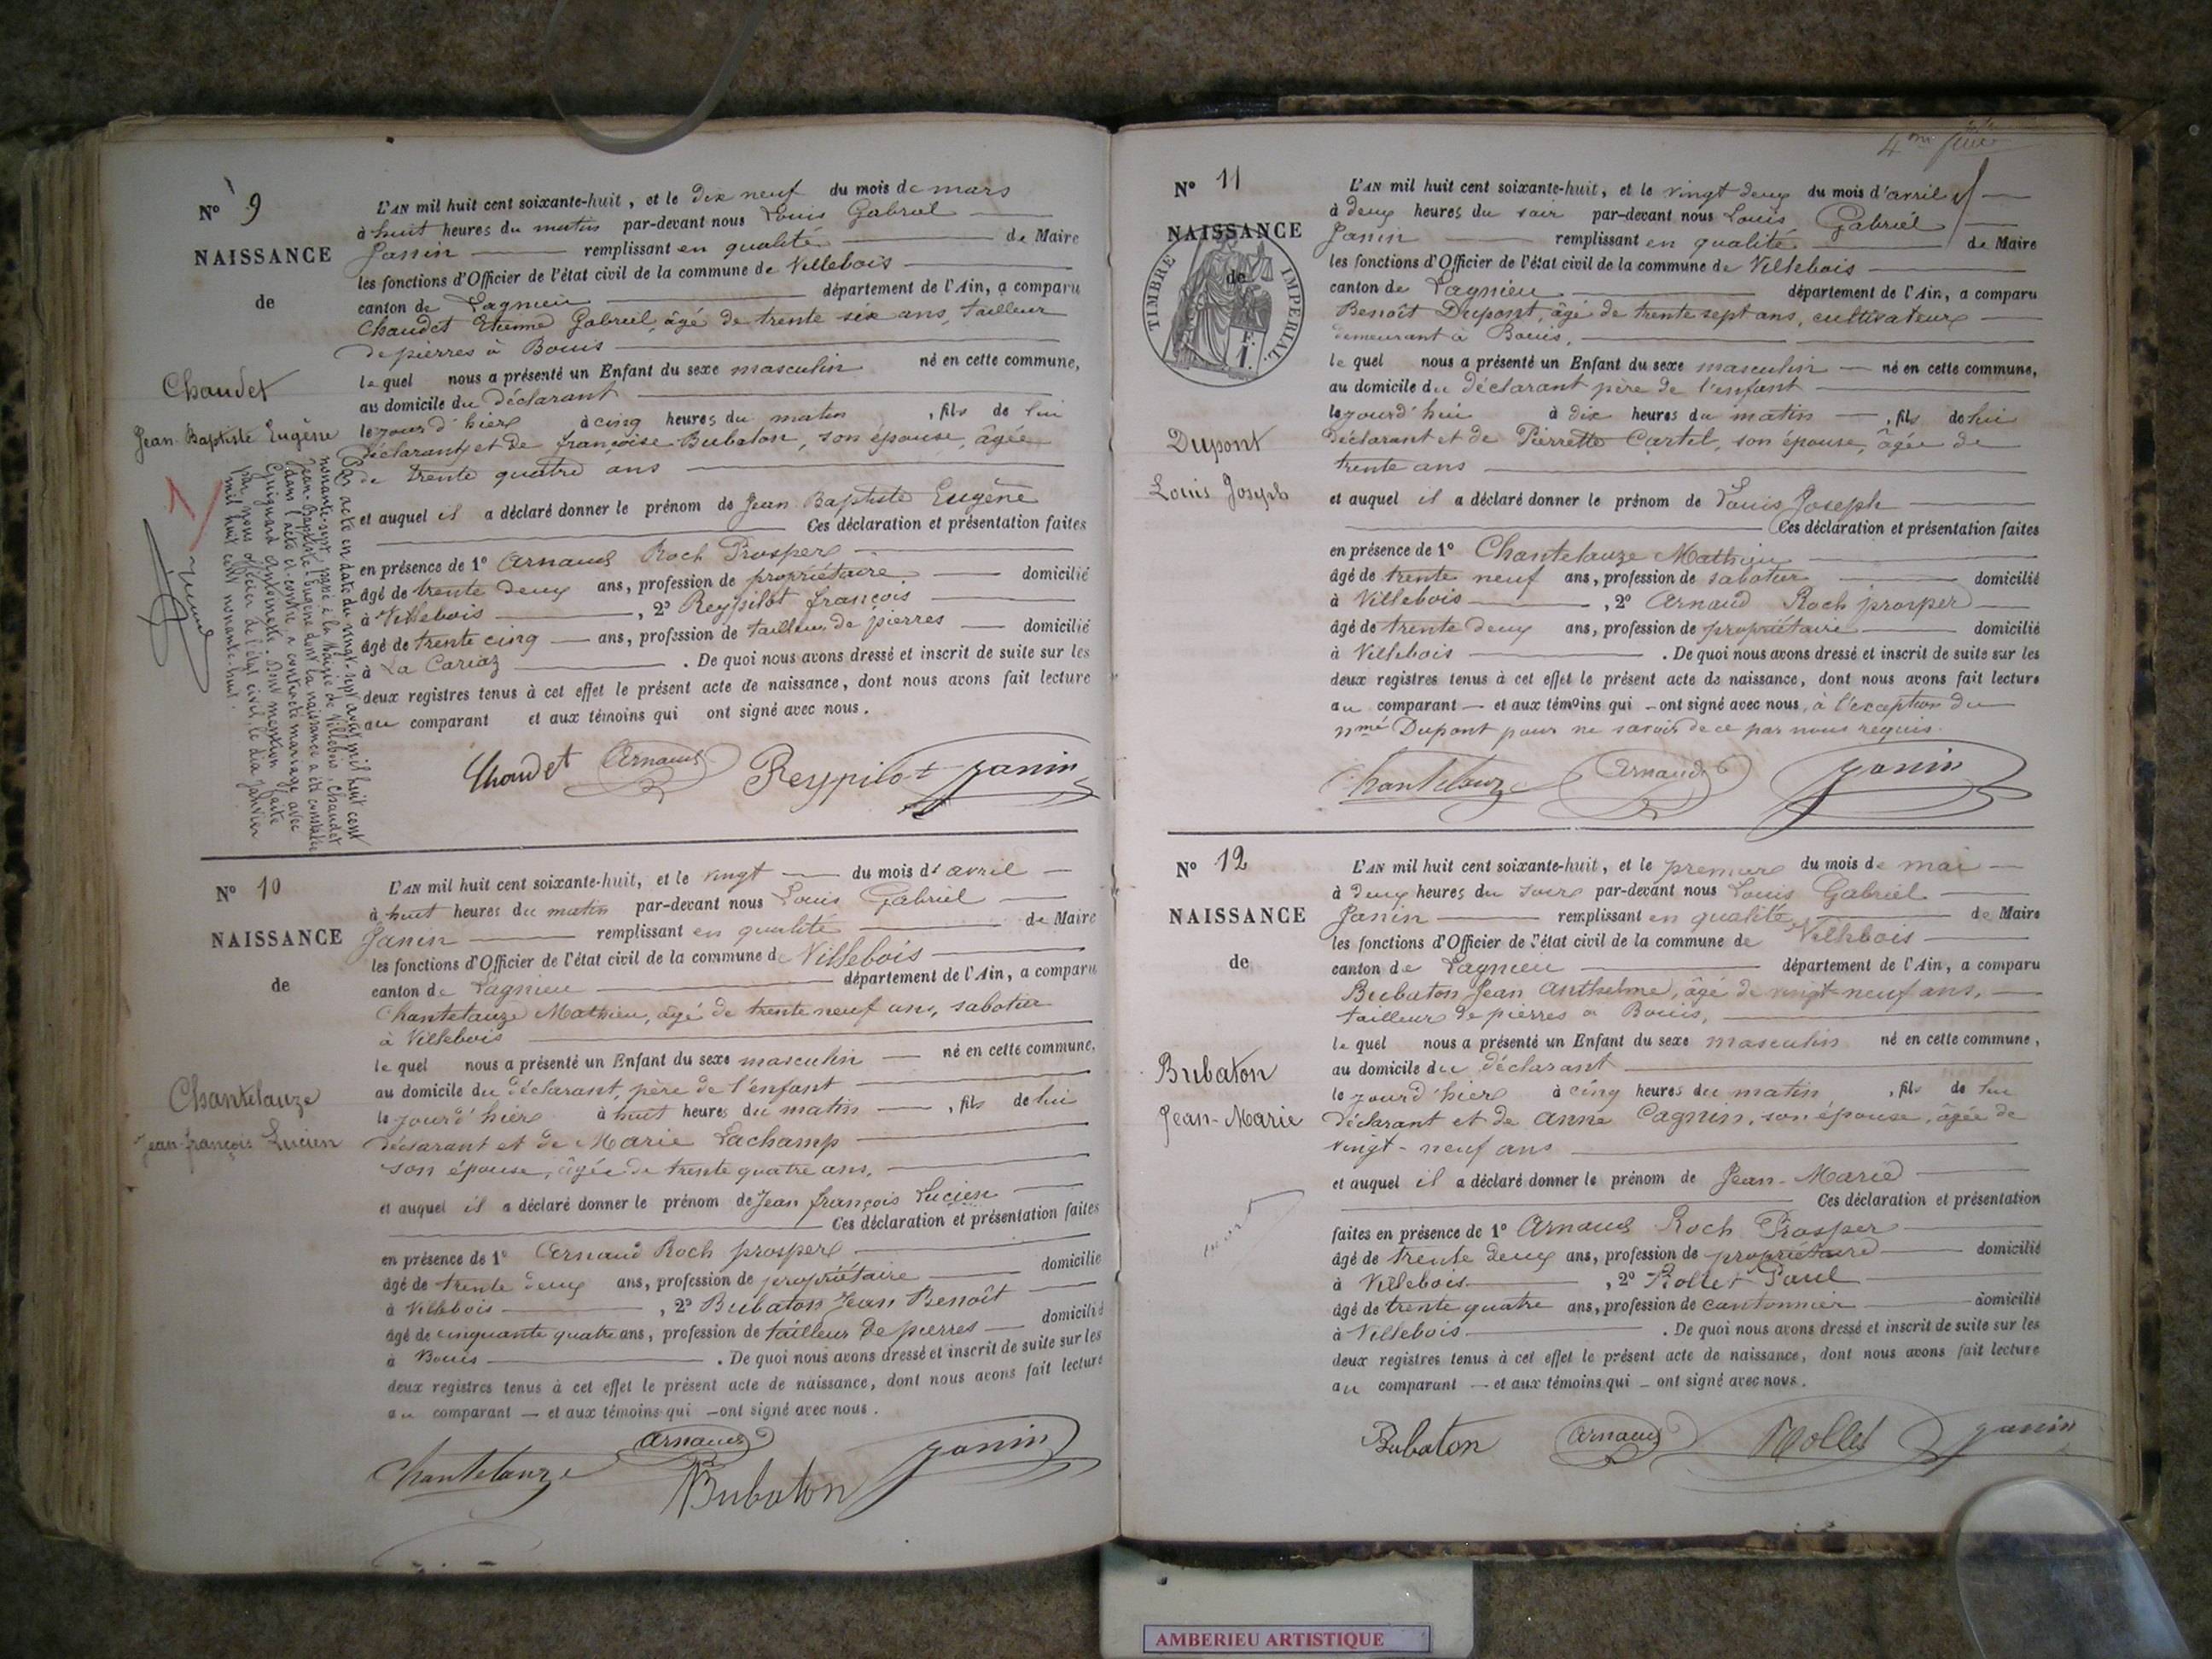 N° 9
NAISSANCE
de
Chaudet
Jean-Baptiste Eugène
Par acte en date du vingt-sept avril mil huit cent
nonante-sept, passé à la Mairie de Villebois, Chaudet
Jean-Baptiste-Eugène dont la naissance a été constatée
dans l'acte ci-contre, a contracté mariage avec
Guignard Antoinette. Dont mention faite
par nous officier de l'état civil, le dix janvier
mil huit cent nonante-huit.
L'AN mil huit cent soixante-huit, et le dix neuf du mois de mars
à huit heures du matin par-devant nous Louis Gabriel
Janin remplissant en qualité de Maire
les fonctions d'Officier de l'état civil de la commune de Villebois
canton de Lagnieu département de l'Ain, a comparu
Chaudet Etienne Gabriel, âgé de trente six ans, tailleur
de pierres à Bouis
le quel nous a présenté un Enfant du sexe masculin né en cette commune,
au domicile du déclarant
le jour d'hier à cinq heures du matin, fils de lui
déclarant et de françoise Bubaton, son épouse, âgée
de trente quatre ans
et auquel il a déclaré donner le prénom de Jean Baptiste Eugène
Ces déclaration et présentation faites
en présence de 1° Arnaud Roch Prosper
âgé de trente deux ans, profession de propriétaire domicilié
à Villebois, 2° Reypilot françois
âgé de trente cinq ans, profession de tailleur de pierres domicilié
à La Cariaz. De quoi nous avons dressé et inscrit de suite sur les
deux registres tenus à cet effet le présent acte de naissance, dont nous avons fait lecture
au comparant et aux témoins qui ont signé avec nous.
Chaudet Arnaud Reypilot Janin
N° 10
NAISSANCE
de
Chantelauze
Jean-françois Lucien
L'AN mil huit cent soixante-huit, et le vingt du mois d'avril
à huit heures du matin par-devant nous Louis Gabriel
Janin remplissant en qualité de Maire
les fonctions d'Officier de l'état civil de la commune de Villebois
canton de Lagnieu département de l'Ain, a comparu
Chantelauze Mathieu, âgé de trente neuf ans, sabotier
à Villebois
le quel nous a présenté un Enfant du sexe masculin né en cette commune,
au domicile du déclarant, père de l'enfant
le jour d'hier à huit heures du matin, fils de lui
déclarant et de Marie Lachamp
son épouse, âgée de trente quatre ans,
et auquel il a déclaré donner le prénom de Jean françois Lucien
Ces déclaration et présentation faites
en présence de 1° Arnaud Roch prosper
âgé de trente deux ans, profession de propriétaire domicilié
à Villebois, 2° Bubaton Jean Benoît
âgé de cinquante quatre ans, profession de tailleur de pierres domicilié
à Bouis. De quoi nous avons dressé et inscrit de suite sur les
deux registres tenus à cet effet le présent acte de naissance, dont nous avons fait lecture
au comparant et aux témoins qui ont signé avec nous.
Chantelauze Arnaud Bubaton Janin
4me
N° 11
NAISSANCE
de
TIMBRE IMPERIAL
1 F.
Dupont
Louis Joseph
L'AN mil huit cent soixante-huit, et le vingt deux du mois d'avril
à deux heures du soir par-devant nous Louis Gabriel
Janin remplissant en qualité de Maire
les fonctions d'Officier de l'état civil de la commune de Villebois
canton de Lagnieu département de l'Ain, a comparu
Benoît Dupont, âgé de trente sept ans, cultivateur
demeurant à Bouis,
le quel nous a présenté un Enfant du sexe masculin né en cette commune,
au domicile du déclarant père de l'enfant
le jourd'hui à dix heures du matin, fils de lui
déclarant et de Pierrette Cartel, son épouse, âgée de
trente ans
et auquel il a déclaré donner le prénom de Louis Joseph
Ces déclaration et présentation faites
en présence de 1° Chantelauze Mathieu
âgé de trente neuf ans, profession de sabotier domicilié
à Villebois, 2° Arnaud Roch prosper
âgé de trente deux ans, profession de propriétaire domicilié
à Villebois. De quoi nous avons dressé et inscrit de suite sur les
deux registres tenus à cet effet le présent acte de naissance, dont nous avons fait lecture
au comparant et aux témoins qui ont signé avec nous, à l'exception du
nmé Dupont pour ne savoir de ce par nous requis.
Chantelauze Arnaud Janin
N° 12
NAISSANCE
de
Bubaton
Jean-Marie
L'AN mil huit cent soixante-huit, et le premier du mois de mai
à deux heures du soir par-devant nous Louis Gabriel
Janin remplissant en qualité de Maire
les fonctions d'Officier de l'état civil de la commune de Villebois
canton de Lagnieu département de l'Ain, a comparu
Bubaton Jean Anthelme, âgé de vingt-neuf ans,
tailleur de pierres à Bouis,
le quel nous a présenté un Enfant du sexe masculin né en cette commune,
au domicile du déclarant
le jour d'hier à cinq heures du matin, fils de lui
déclarant et de Anne Cagnin, son épouse, âgée de
vingt-neuf ans
et auquel il a déclaré donner le prénom de Jean-Marie
Ces déclaration et présentation
faites en présence de 1° Arnaud Roch Prosper
âgé de trente deux ans, profession de propriétaire domicilié
à Villebois, 2° Rollet Paul
âgé de trente quatre ans, profession de cantonnier domicilié
à Villebois. De quoi nous avons dressé et inscrit de suite sur les
deux registres tenus à cet effet le présent acte de naissance, dont nous avons fait lecture
au comparant et aux témoins qui ont signé avec nous.
Bubaton Arnaud Rollet Janin
AMBERIEU ARTISTIQUE